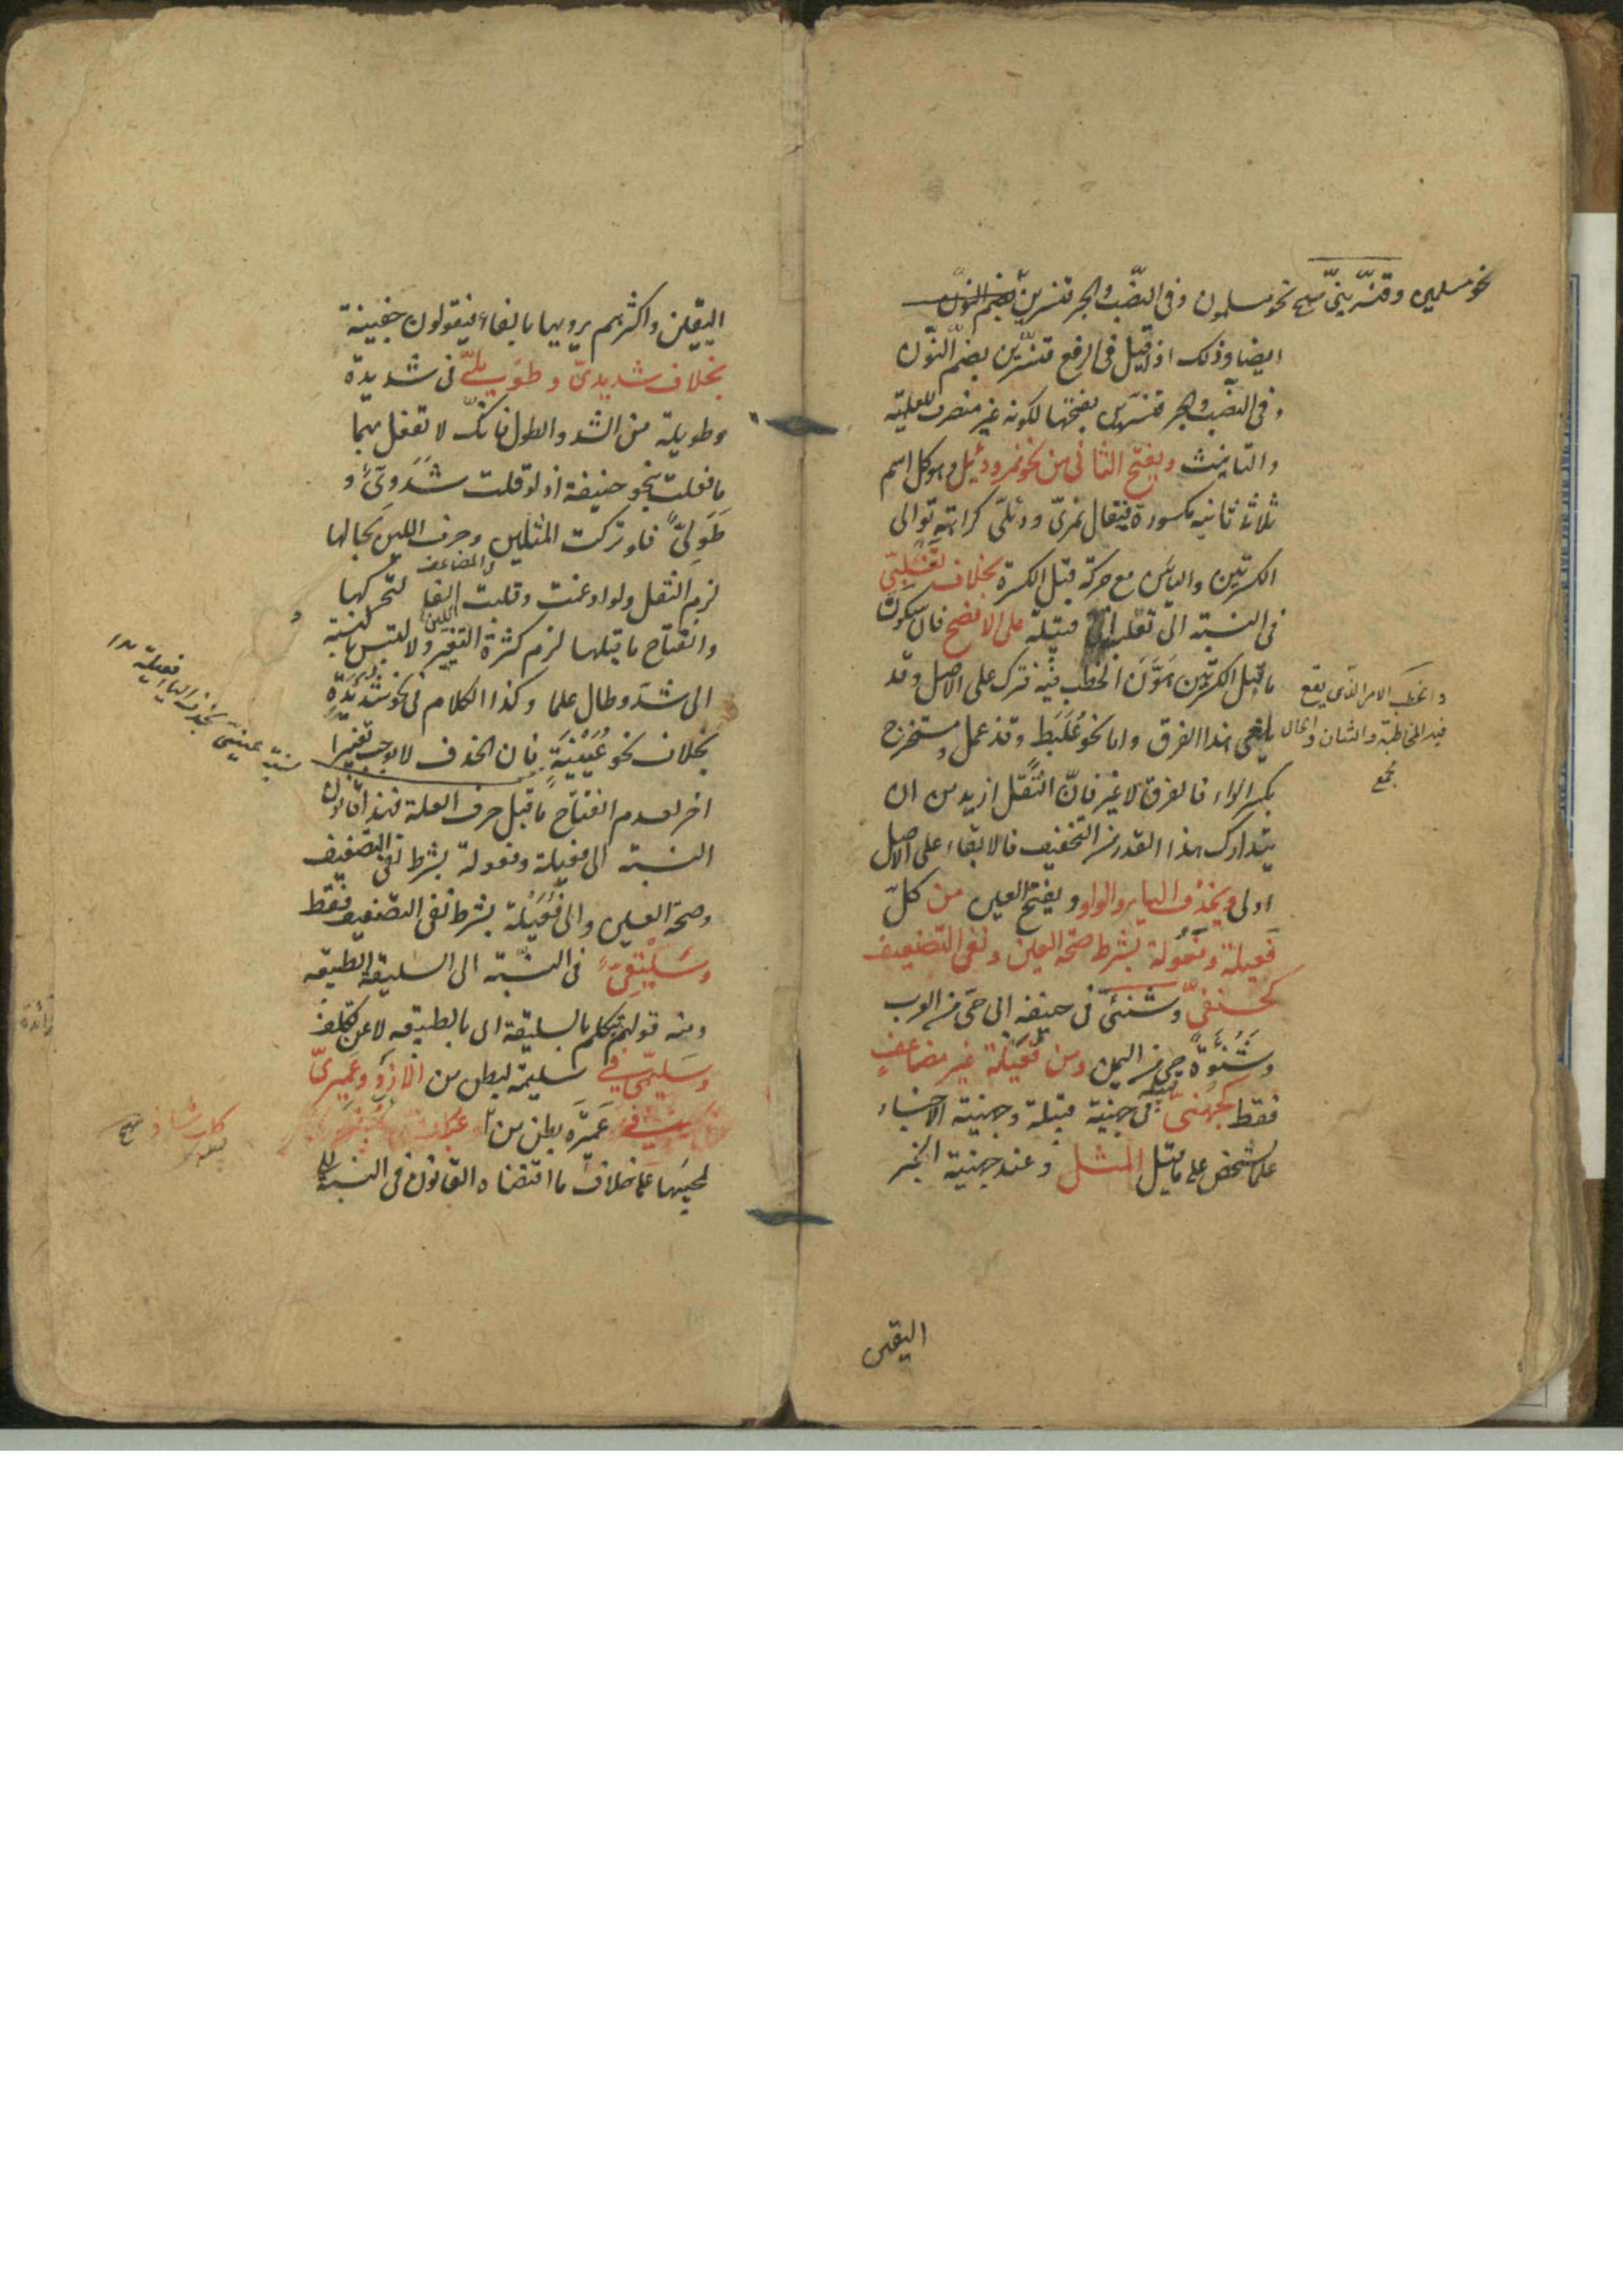 نحو مسلمين وقنسريني صح نحو مسلمون وفى النصب والجر قنسرين بضم النون
ايضا وذلك اذا قيل فى الرفع قنسرين بضم النون
وفى النصب والجر قنسرين بفتحها لكونه غير منصرف للعلمية
والتانيث ويفتح الثانى من نحو نمر ودئل وهو كل اسم
ثلاث ثانيه مكسورة فيقال نمرى ودئلى كراهة توالى
الكسرتين والياءين مع حركة قبل الكسرة بخلاف تغلبى
فى النسبة الى تغلب قبيلة على الافصح فان سكون
ما قبل الكسرتين هون الخطب فيه فترك على الاصل وقد
يلغى هذا الفرق واما نحو علبط وقذعمل ومستخرج
بكسر الراء فالفرق لا غير فان الثقل ازيد من ان
يتدارك بهذا القدر من التخفيف فالابقاء على الاصل
اولى ويحذف الياء والواو ويفتح العين من كل
فعيلة وفعولة بشرط صحة العين ونفى التضعيف
كحنفى وشنئى فى حنيفة الى حى من العرب
وشنوءة حى من اليمن ومن فعيلة غير مضاعف
فقط كجهنى فى جهينة قبيلة وجهينة الاخبار
علم شخص على ما قيل المثل وعند جهينة الخبر
والخطب الامر الذى يقع
فيه المخاطبة والشان والحال
مجمع
اليقين
اليقين واكثرهم يرويها بالفاء فيقولون جفينة
بخلاف شديدى وطويلى فى شديدة
وطويلة من الشد والطول فانك لا تفعل بهما
ما فعلت بنحو حنيفة اذ لو قلت شددى و
طولى فلو تركت المثلين وحرف اللين بحالها
لزم الثقل ولو ادغمت وقلبت الفا لتحركها
وانفتاح ما قبلها لزم كثرة التغيير ولالتبس بالنسبة
الى شد وطال علما وكذا الكلام فى نحو شديدة
بخلاف نحو عيينة فان الحذف لا يوجب تغييرا
اخر لعدم انفتاح ما قبل حرف العلة فهذا قانون
النسبة الى فعيلة وفعولة بشرط نفى التضعيف
وصحة العين والى فعيلة بشرط نفى التضعيف فقط
وسليقى فى النسبة الى السليقة الطبيعة
ومنه قولهم يتكلم بالسليقة اى بالطبيعة لا عن تكلف
وسليمى فى سليمة لبطن من الازد وعميرى
فى عميرة بطن من
لمجيئها على خلاف ما اقتضاه القانون فى النسبة الى
والمضاعف
اللين
كلب شاذ
صح